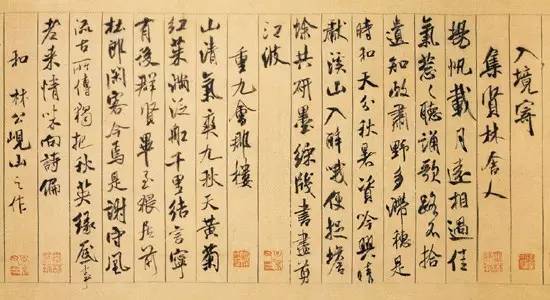 入境寄
集賢林舍人
揚帆載月遠相過佳
氣葱葱聽誦歌路不拾
遺知政肅野多滯穗是
時和天分秋暑資吟興晴
獻溪山入醉哦便捉蟾
蜍共研墨綵牋書盡剪
江波
重九會郡樓
山清氣爽九秋天黃菊
紅茱滿泛船千里結言寧
有後群賢畢至猥居前
杜郎閑客今焉是謝守風
流古所傳獨把秋英緣底事
老来情味向詩偏
和林公峴山之作